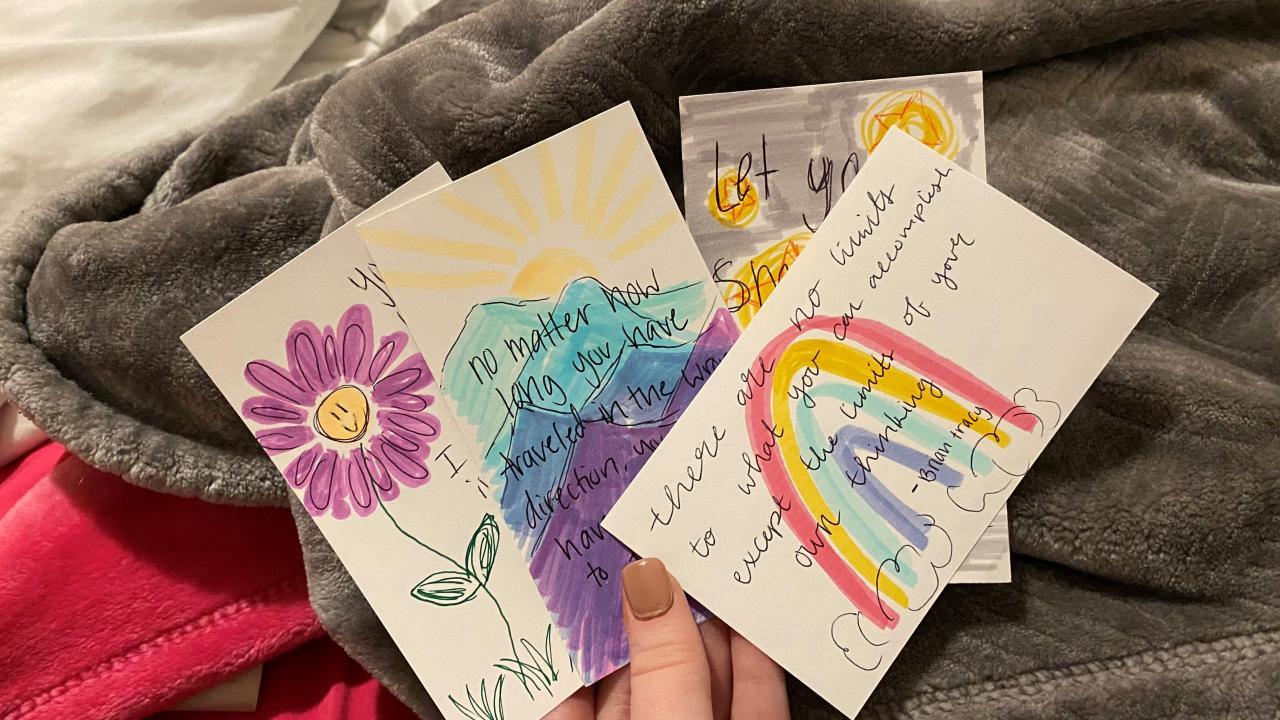 I
no matter how
long you have
traveled in the
direction,
to
Let
there are no limits
to what you can accomplish
except the limits of your
own thinking
-Brian tracy